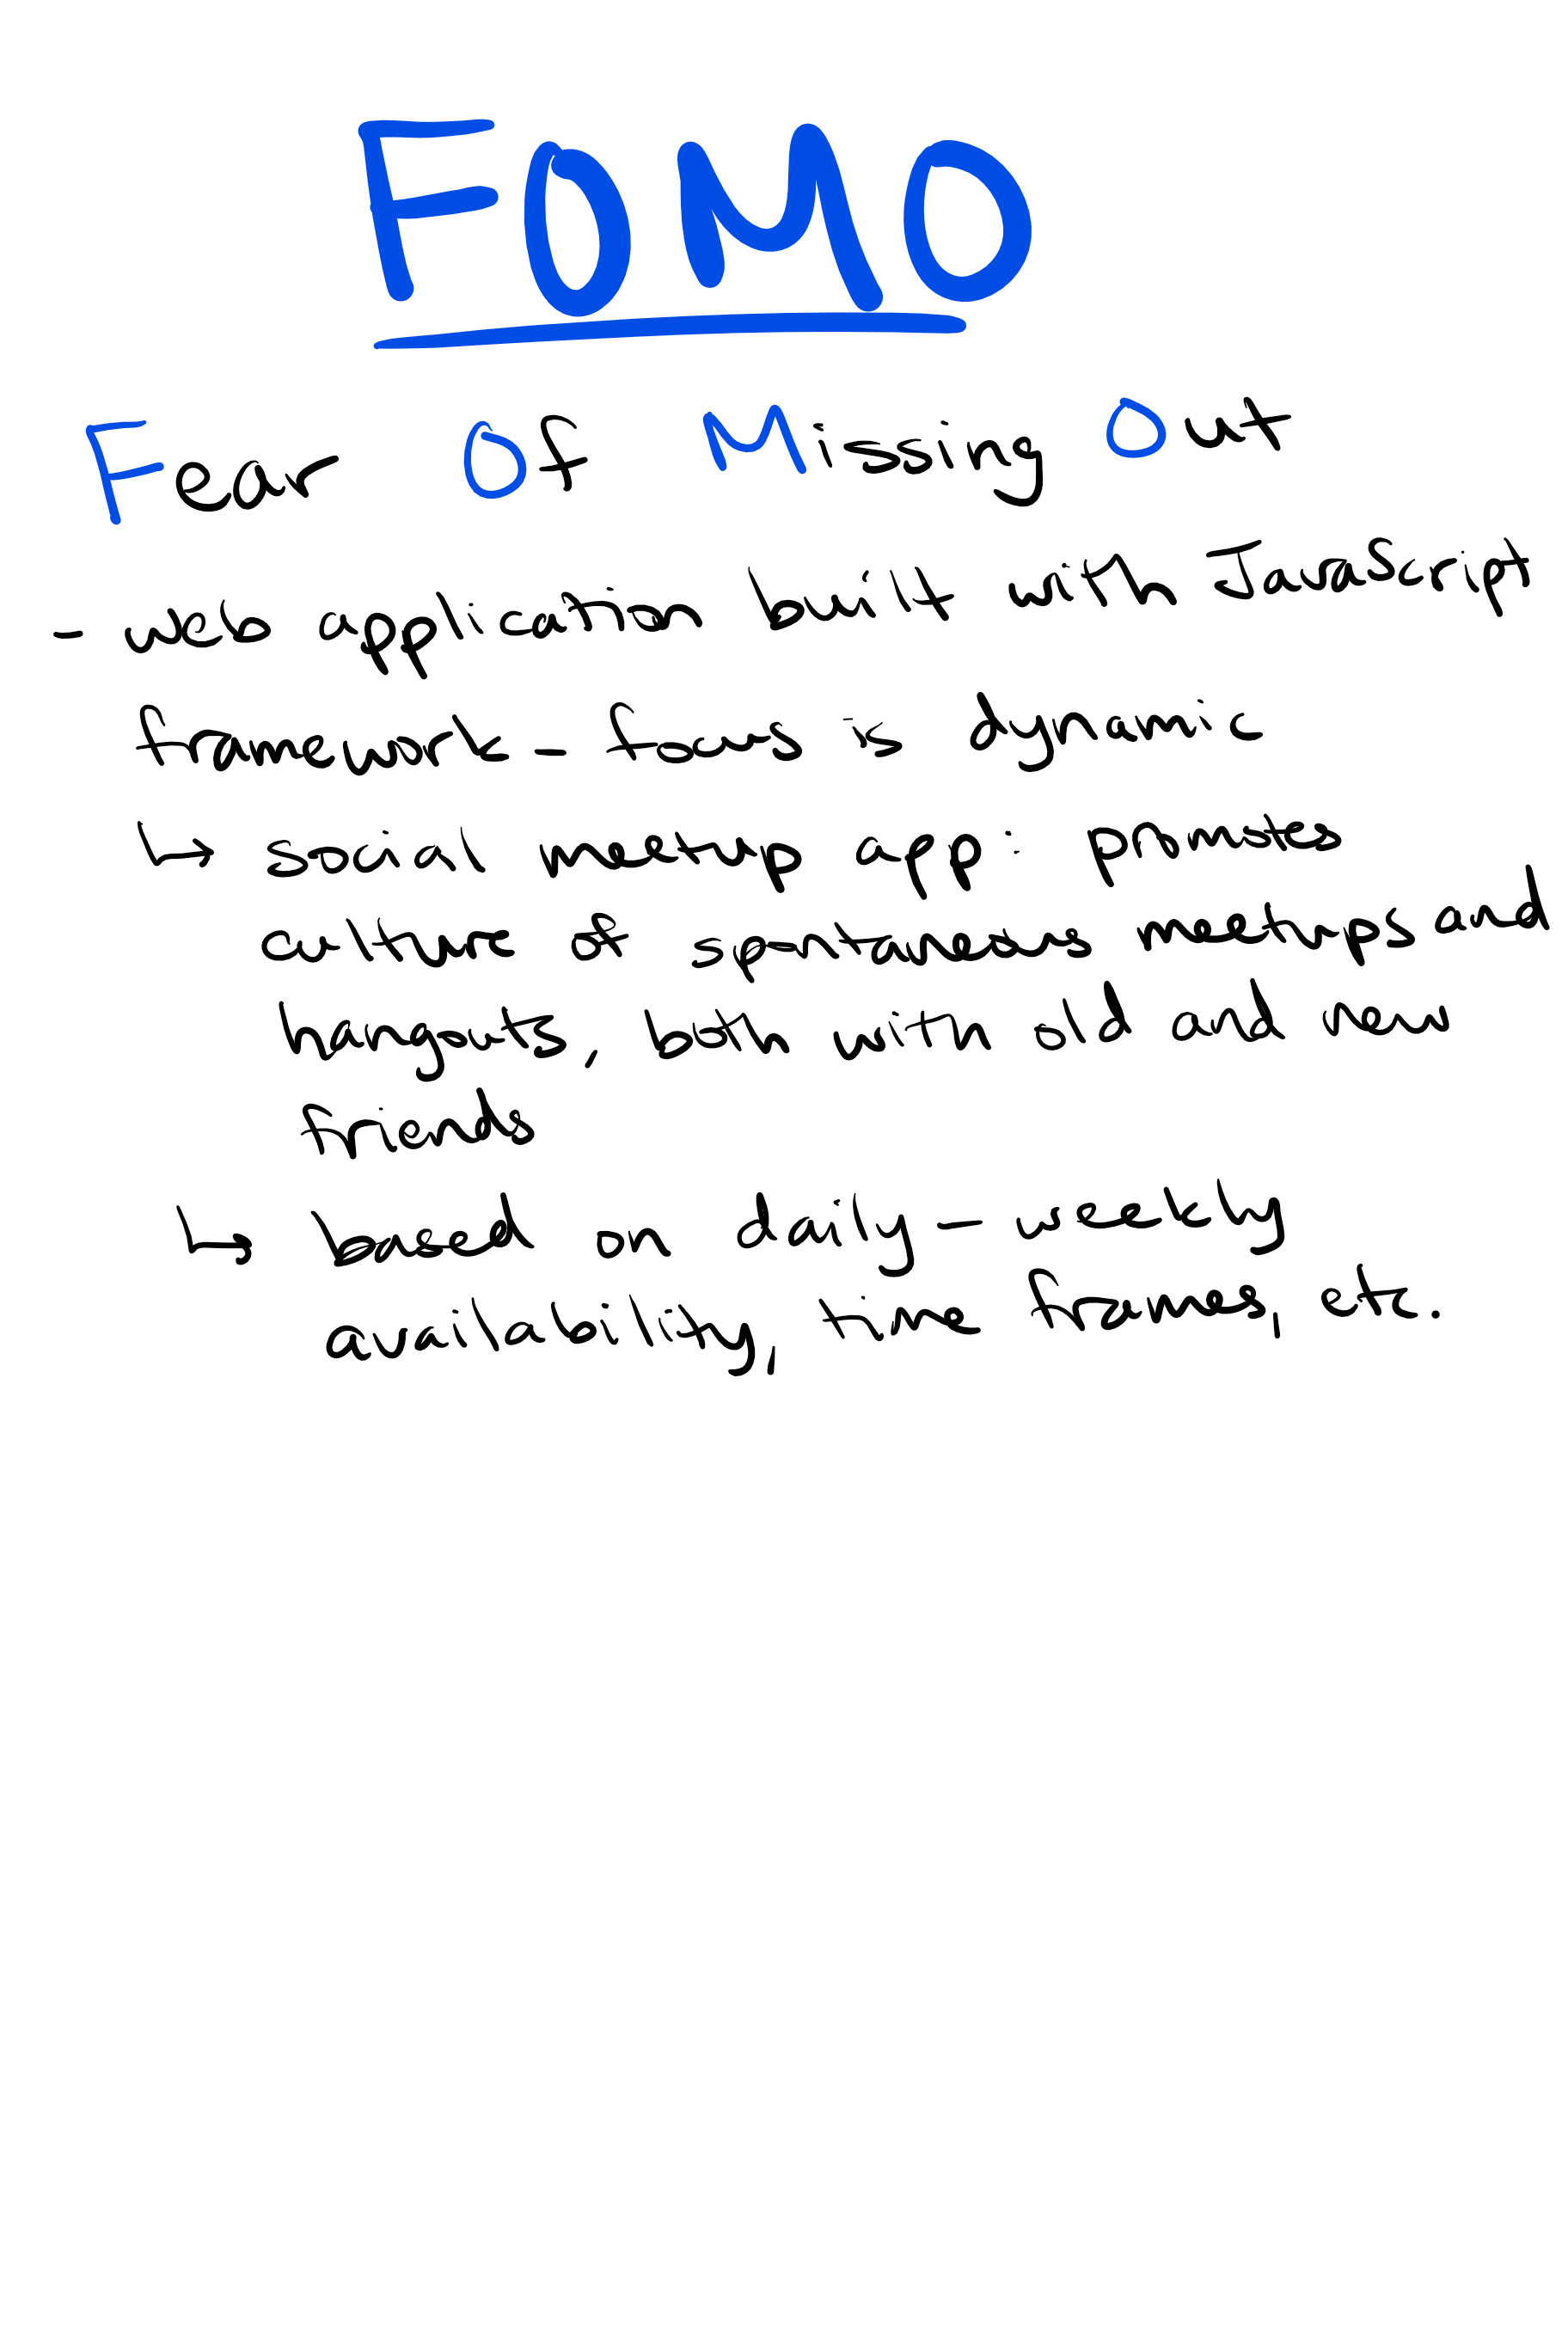 FOMO
Fear Of Missing Out
- web application built with JavaScript
framework - focus is dynamic
↳ social meetup app: promotes
culture of spontaneous meetups and
hangouts, both with old and new
friends
↳ based on daily - weekly
availability, time frames, etc.